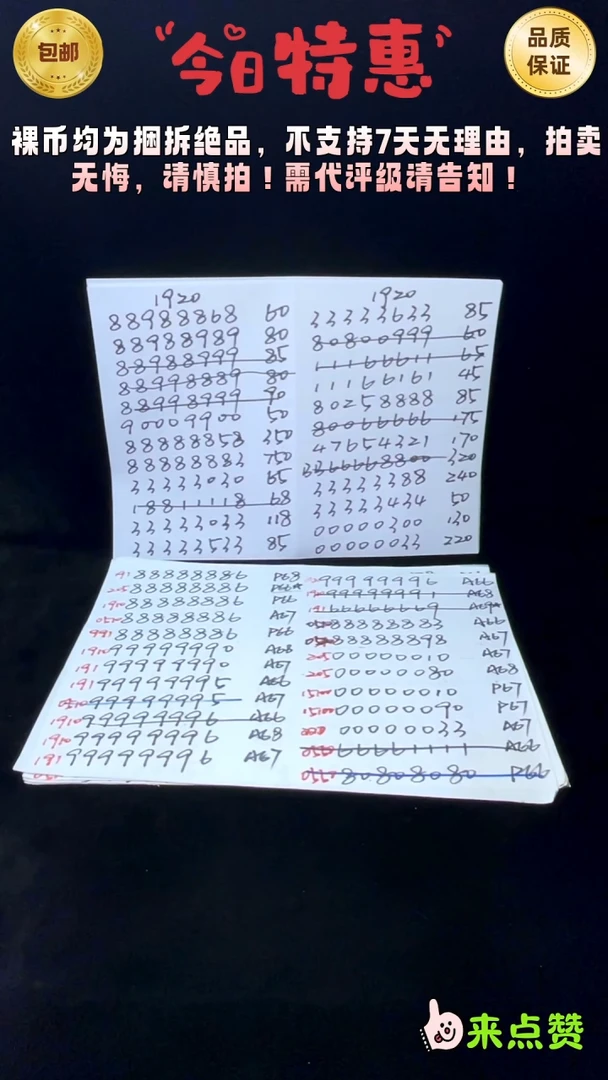 包邮
今日特惠
品质
保证
裸币均为捆拆绝品，不支持7天无理由，拍卖
无悔，请慎拍！需代评级请告知！
1920
88988868 60
88988989 80
88988999 85
88998889 80
88998999 90
90009900 50
88888858 350
88888883 750
33333030 65
18811118 68
33333033 118
33333533 85
1920
33333633 85
80800999 60
11166611 65
11166161 45
80258888 85
80066666 175
47654321 170
3366668800 320
33333388 240
33333434 50
00000300 130
00000033 220
191 88888886 P68
205 88888886 P66*
1910 88888886 P66
0510 88888886 A67
991 88888886 P66
1910 99999990 A68
191 99999990 A67
191 99999995 A66
0510 99999995 A67
1910 99999996 A66
1910 99999996 A68
191 99999996 A67
99999996 A66
99999991 A68
191 66666669 A69*
88888883 A66
88888898 A67
205 00000010 A67
205 00000080 A68
1510 00000010 P67
1510 00000090 P67
00000033 A67
0510 66661111 A66
0510 80808080 P66
来点赞